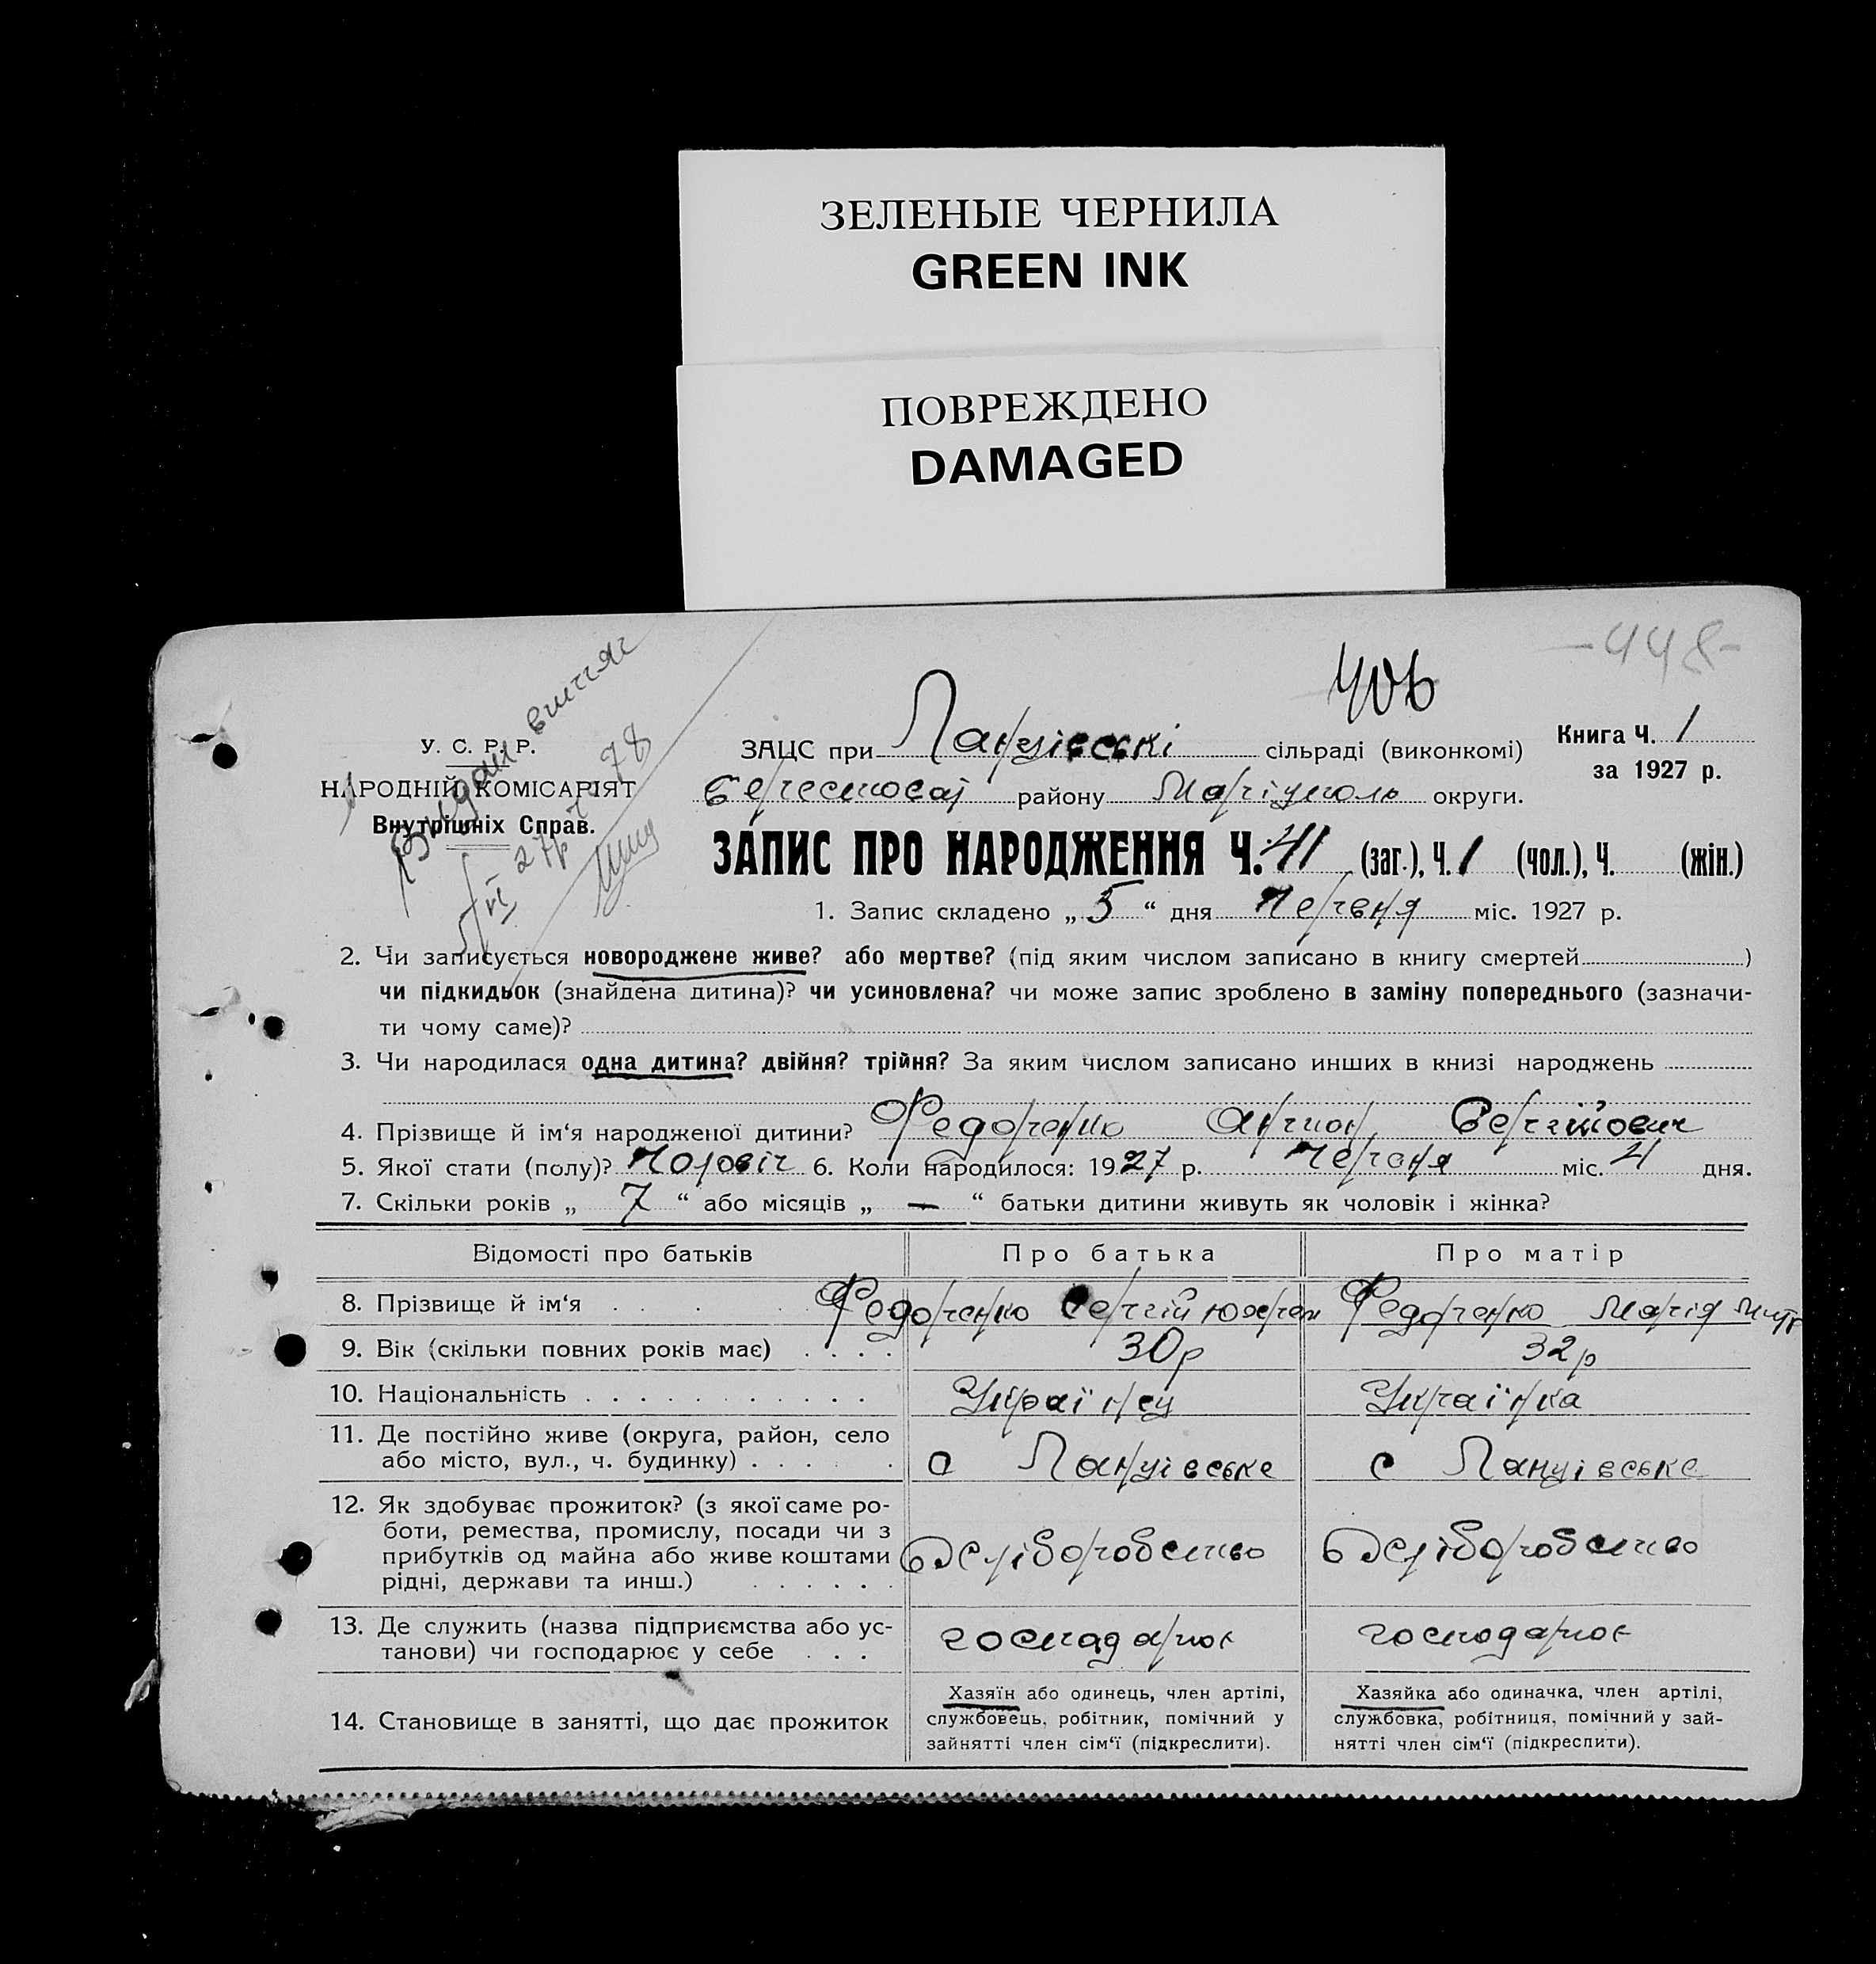 ЗЕЛЕНЫЕ ЧЕРНИЛА
GREEN INK
ПОВРЕЖДЕНО
DAMAGED
-448-
406
Видан витяг
У. С. Р. Р.
НАРОДНІЙ КОМІСАРІЯТ
Внутрішніх Справ.
ЗАЦС при Ланцівські сільраді (виконкомі)
Книга Ч. 1
за 1927 р.
Берестоваї району Маріуполь округи.
ЗАПИС ПРО НАРОДЖЕННЯ Ч. 41 (заг.), Ч. 1 (чол.), Ч. (жін.)
1. Запис складено „ 5 “ дня Червня міс. 1927 р.
2. Чи записується новороджене живе? або мертве? (під яким числом записано в книгу смертей )
чи підкидьок (знайдена дитина)? чи усиновлена? чи може запис зроблено в заміну попереднього (зазначи-
ти чому саме)?
3. Чи народилася одна дитина? двійня? трійня? За яким числом записано инших в книзі народжень
4. Прізвище й ім‘я народженої дитини? Федоренко Антон Сергійович
5. Якої стати (полу)? Чоловіч 6. Коли народилося: 1927 р. Червня міс. 4 дня.
7. Скільки років „ 7 “ або місяців „ — “ батьки дитини живуть як чоловік і жінка?
Відомості про батьків Про батька Про матір
8. Прізвище й ім‘я . . . . Федоренко Сергій Федоренко Марія
9. Вік (скільки повних років має) . . . . 30р 32р
10. Національність . . . . . . . . . . . Українец Українка
11. Де постійно живе (округа, район, село
або місто, вул., ч. будинку) . . . . . с Ланцівське с Ланцівське
12. Як здобуває прожиток? (з якої саме ро-
боти, ремества, промислу, посади чи з
прибутків од майна або живе коштами
рідні, держави та инш.) . . . . . . хліборобство хліборобство
13. Де служить (назва підприємства або ус-
танови) чи господарює у себе . . . господарює господарює
14. Становище в занятті, що дає прожиток
Хазяїн або одинець, член артілі,
службовець, робітник, помічний у
зайнятті член сім‘ї (підкреслити).
Хазяйка або одиначка, член артілі,
службовка, робітниця, помічний у зай-
нятті член сім‘ї (підкреслити).